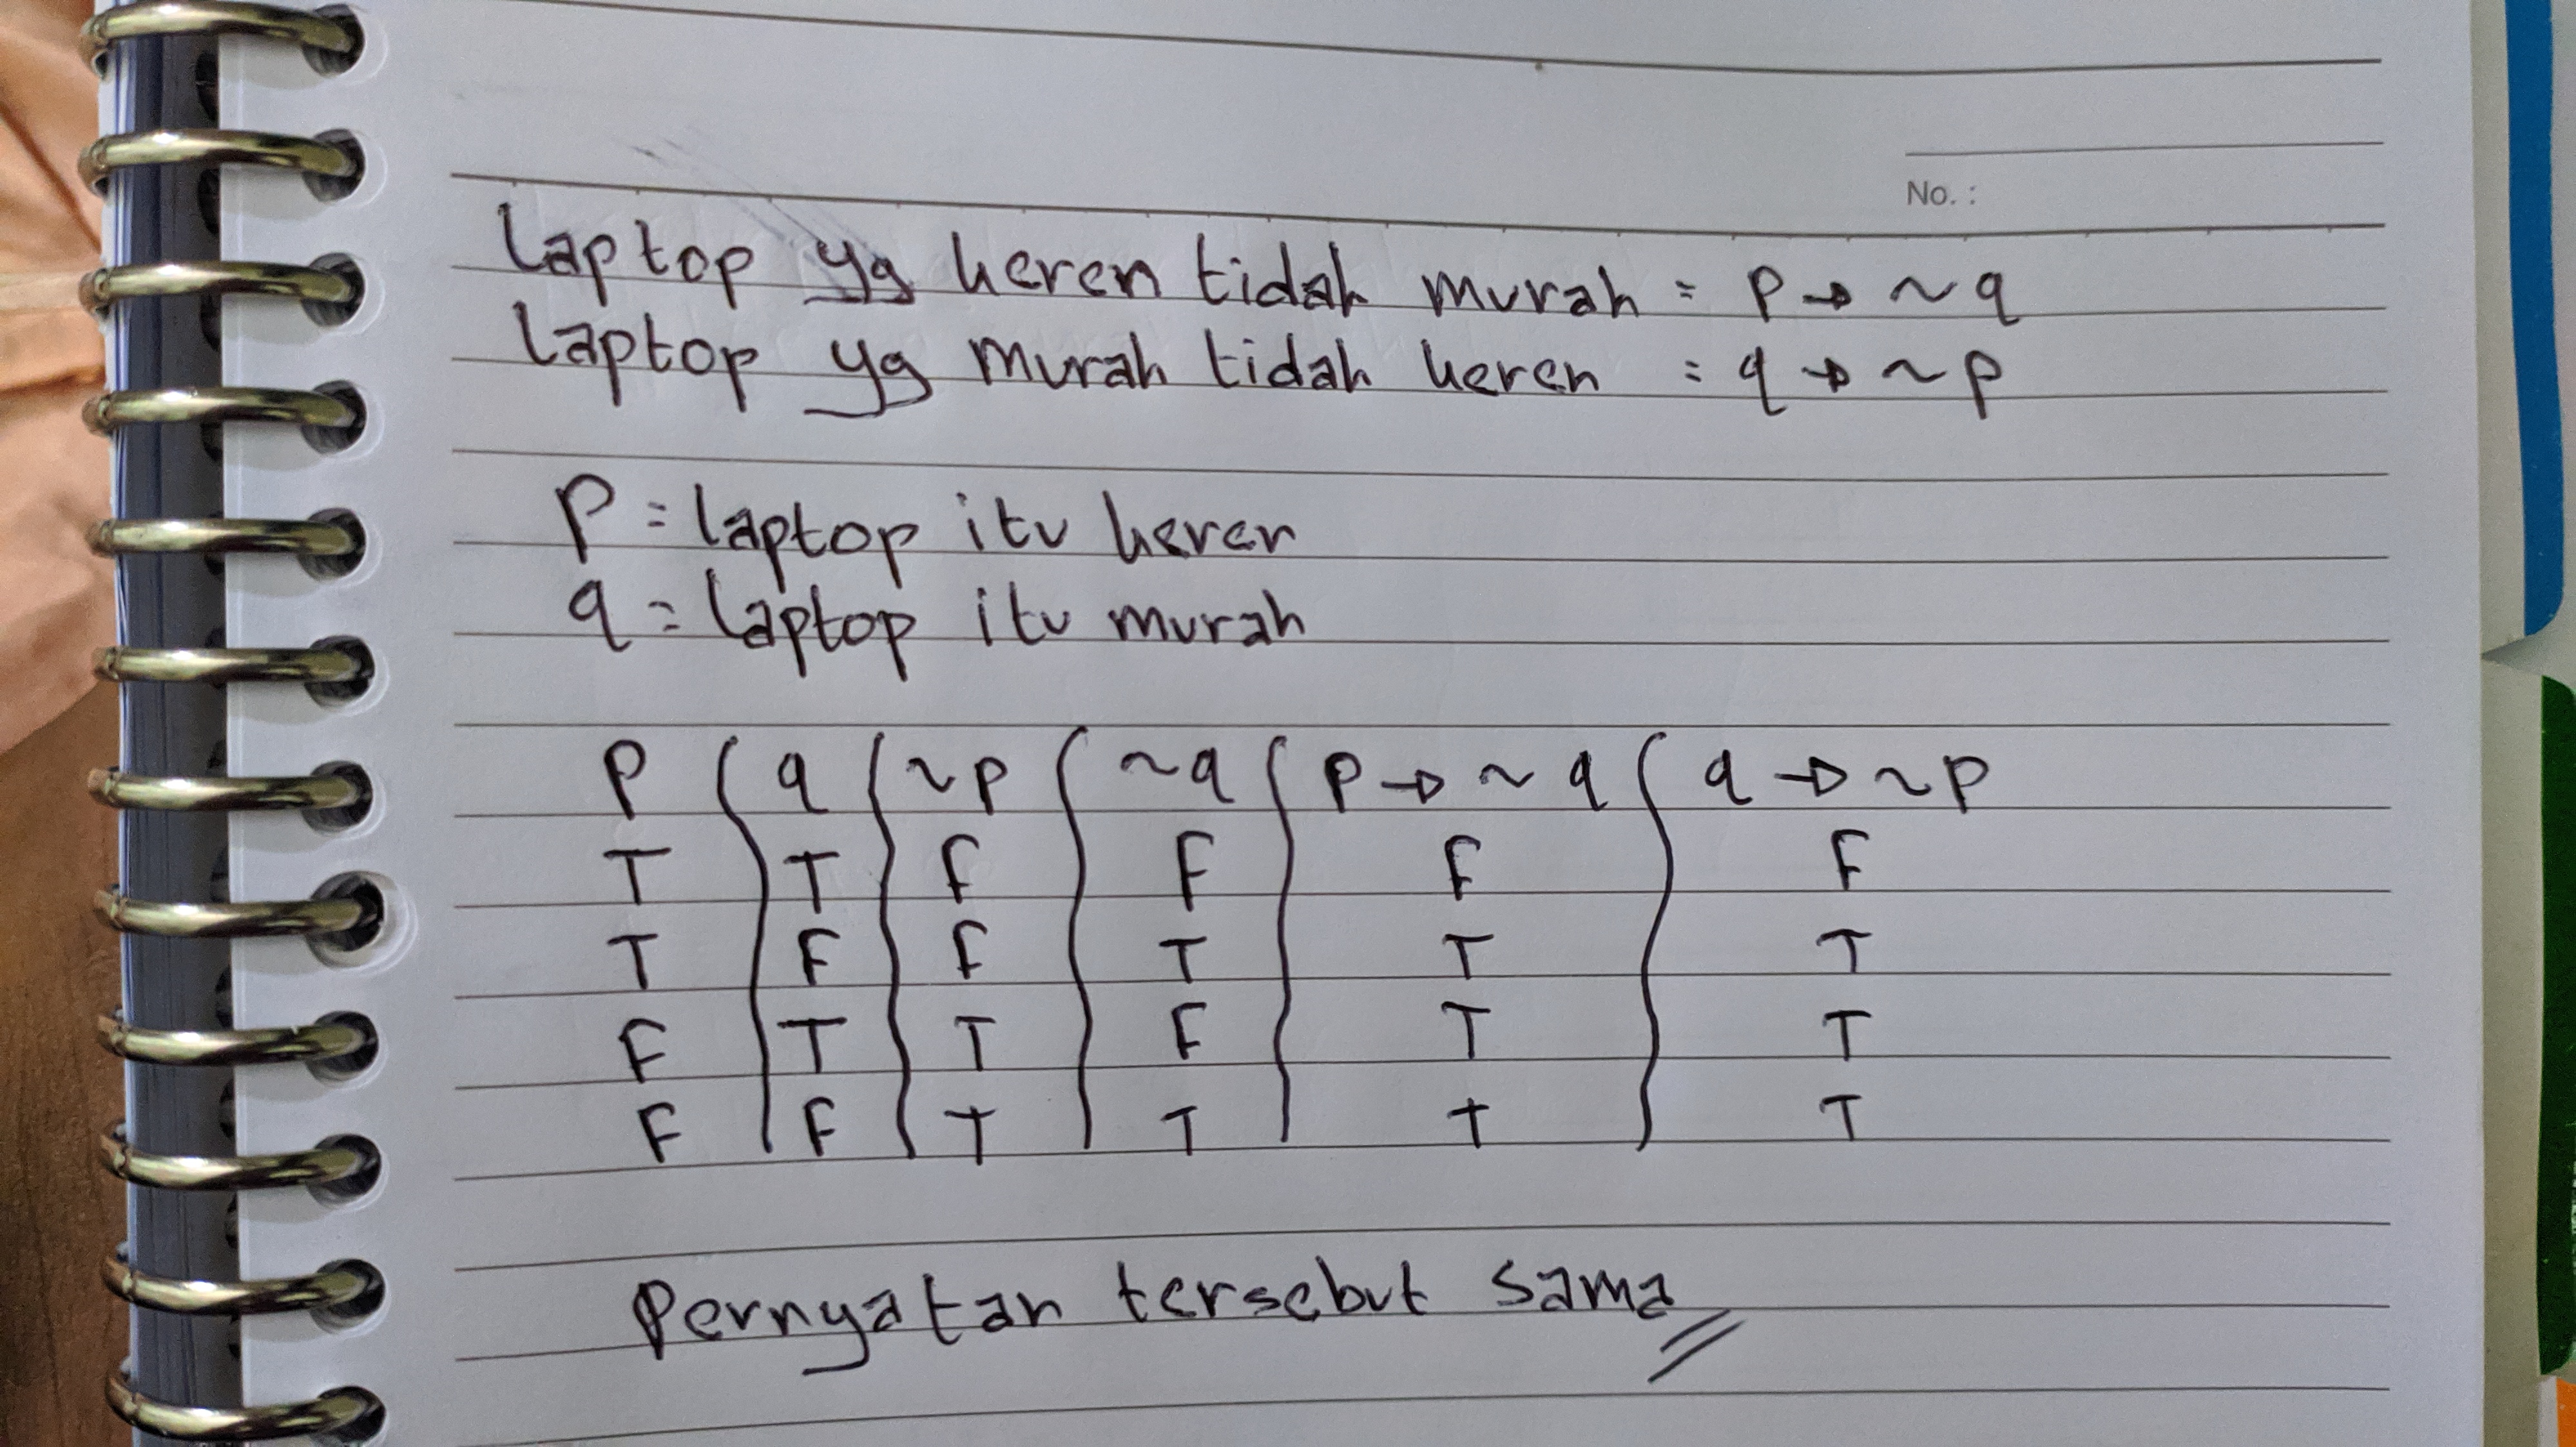 No.:
Laptop yg keren tidak murah = p → ~ q
Laptop yg murah tidak keren = q → ~ p
P = laptop itu keren
q = laptop itu murah
P | q | ~p | ~q | p → ~ q | q → ~ p
T | T | F | F | F | F
T | F | F | T | T | T
F | T | T | F | T | T
F | F | T | T | T | T
Pernyatan tersebut sama